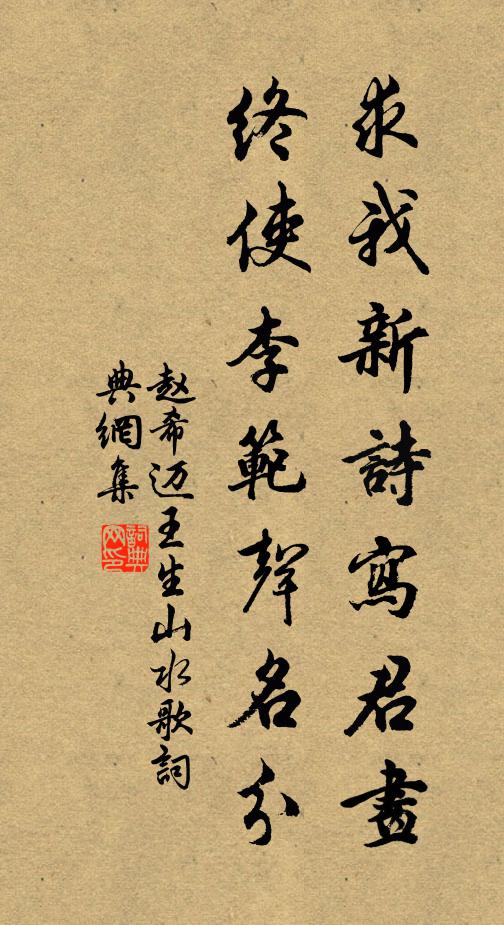 求我新詩寫君畫
終使李範聲名分
赵希迈王生山水歌詞
典網集
詞典网印